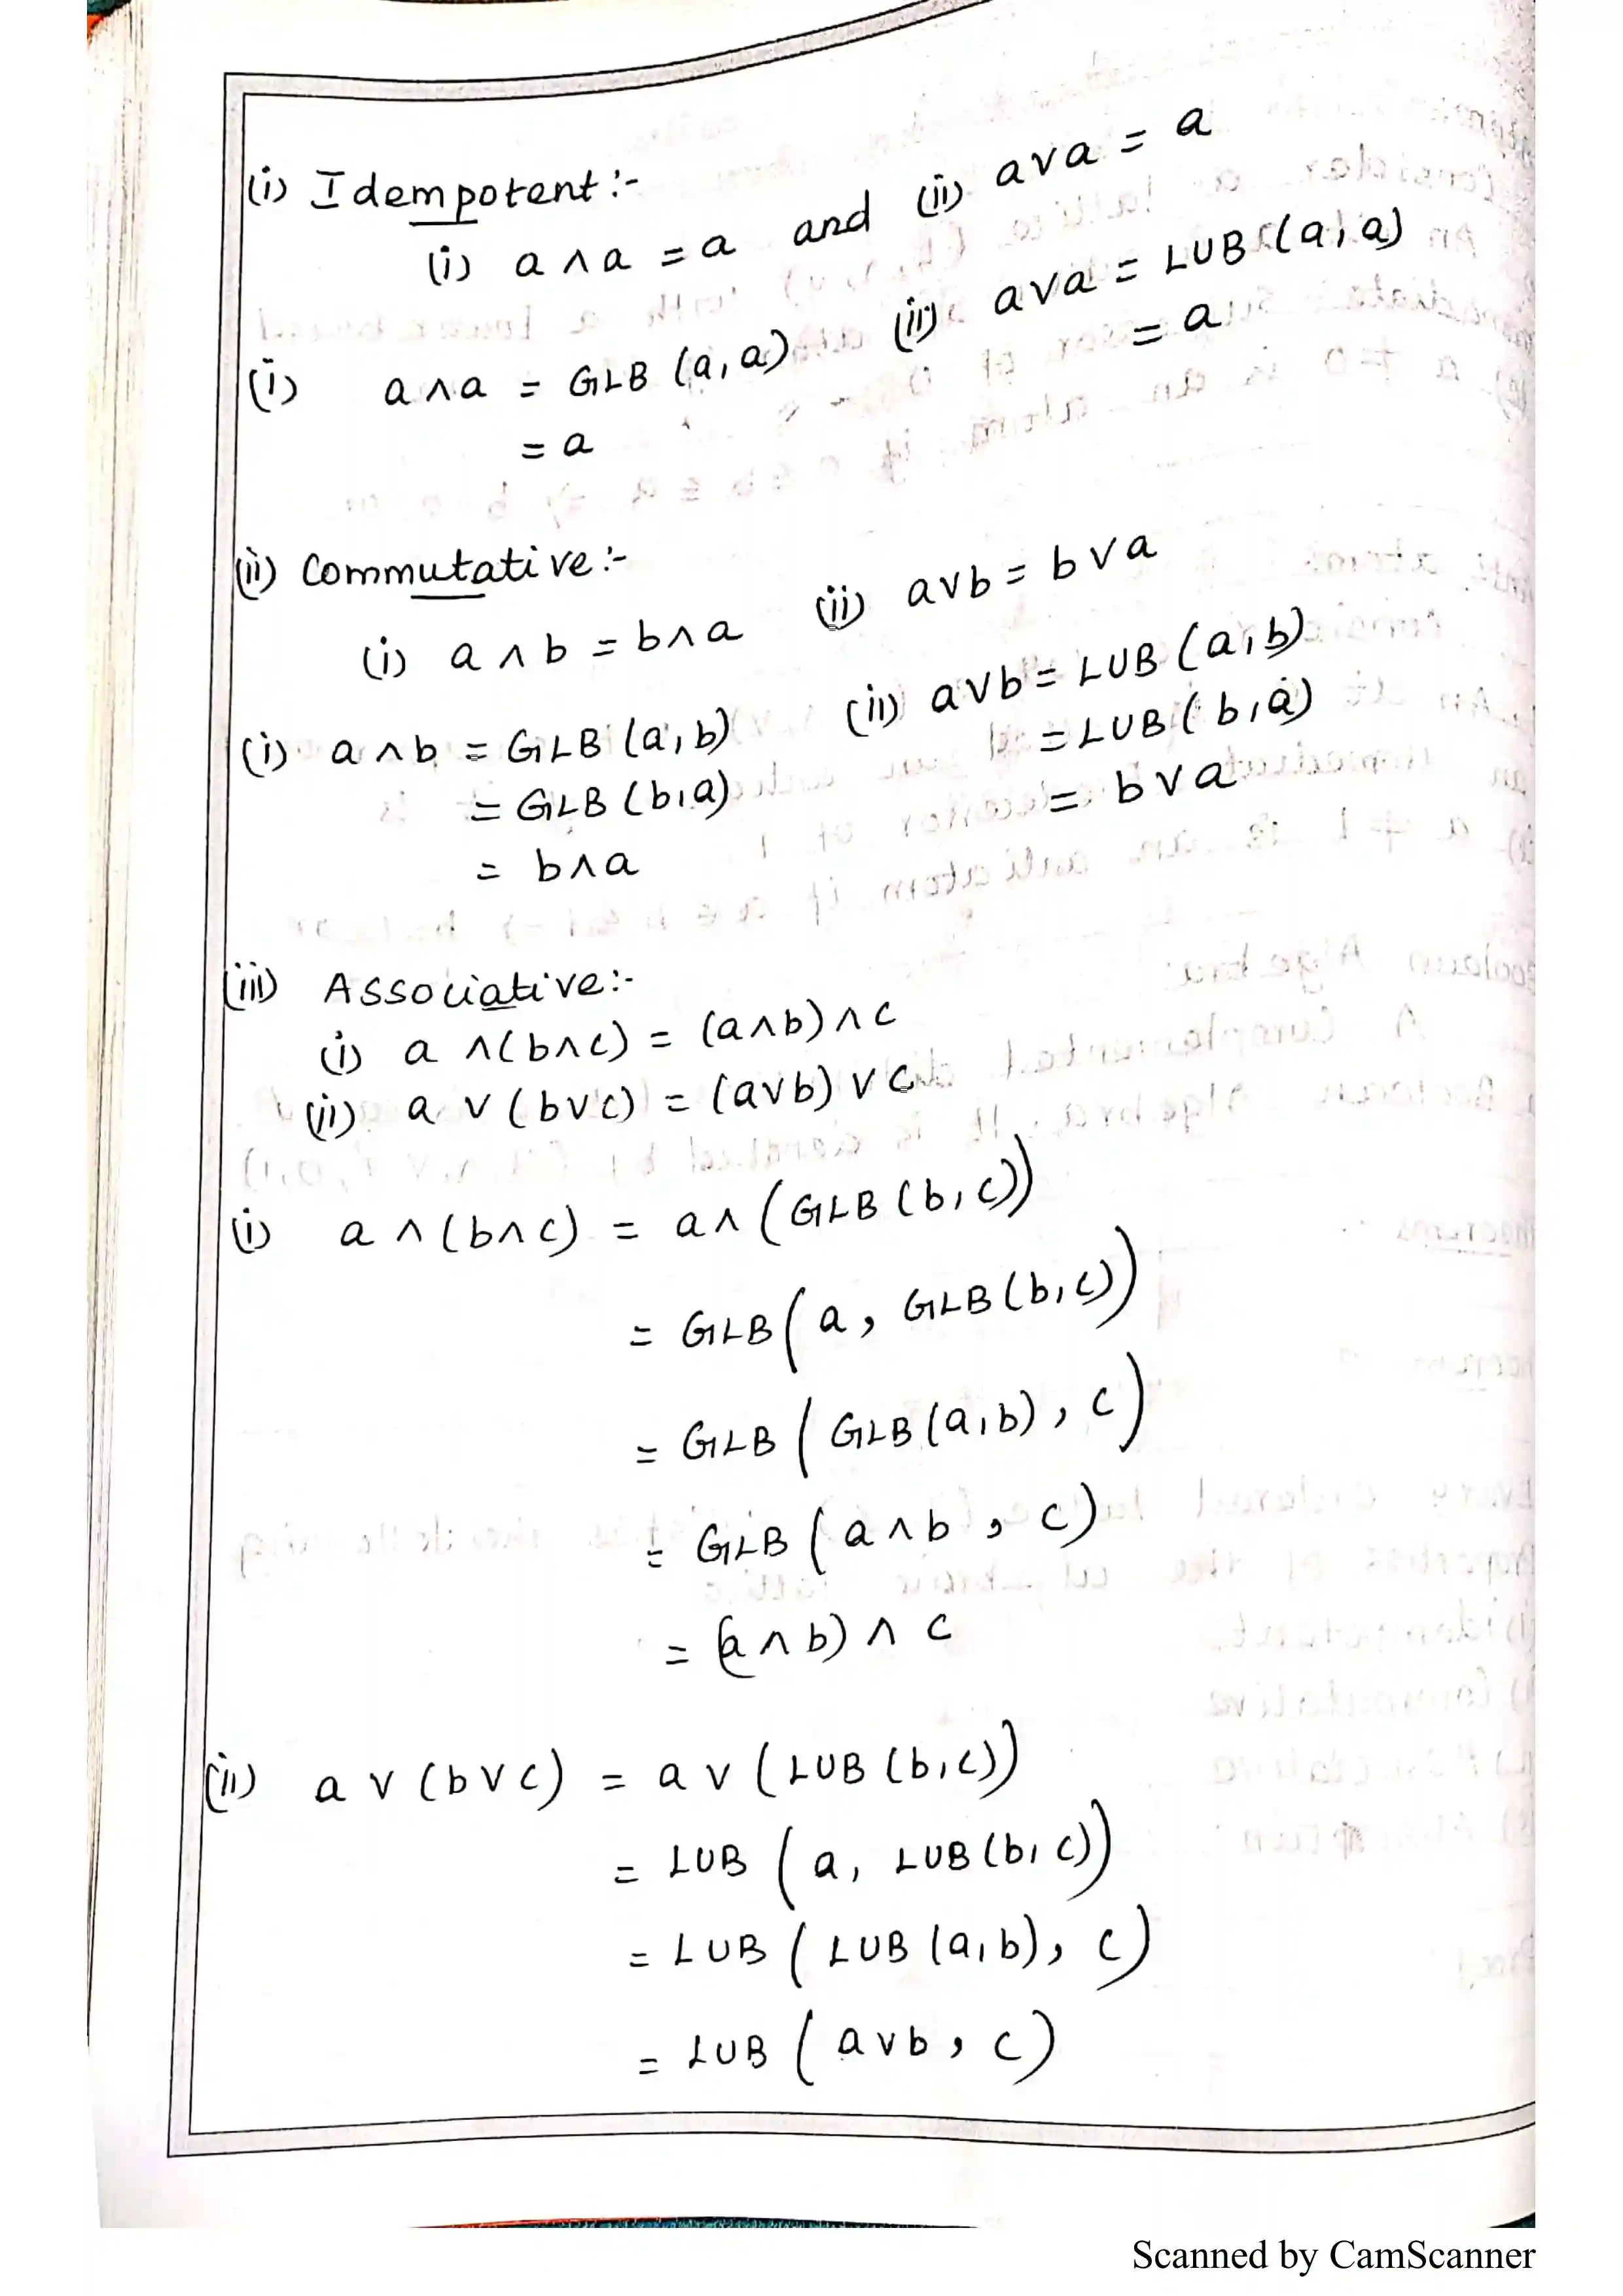 (i) Idempotent :-
(i) a ∧ a = a and (ii) a ∨ a = a
(i) a ∧ a = GLB (a, a) (ii) a ∨ a = LUB (a, a)
= a = a
(ii) Commutative :-
(i) a ∧ b = b ∧ a (ii) a ∨ b = b ∨ a
(i) a ∧ b = GLB (a, b) (ii) a ∨ b = LUB (a, b)
= GLB (b, a) = LUB (b, a)
= b ∧ a = b ∨ a
(iii) Associative :-
(i) a ∧ (b ∧ c) = (a ∧ b) ∧ c
(ii) a ∨ (b ∨ c) = (a ∨ b) ∨ c
(i) a ∧ (b ∧ c) = a ∧ (GLB (b, c))
= GLB (a, GLB (b, c))
= GLB (GLB (a, b), c)
= GLB (a ∧ b, c)
= (a ∧ b) ∧ c
(ii) a ∨ (b ∨ c) = a ∨ (LUB (b, c))
= LUB (a, LUB (b, c))
= LUB (LUB (a, b), c)
= LUB (a ∨ b, c)
Scanned by CamScanner